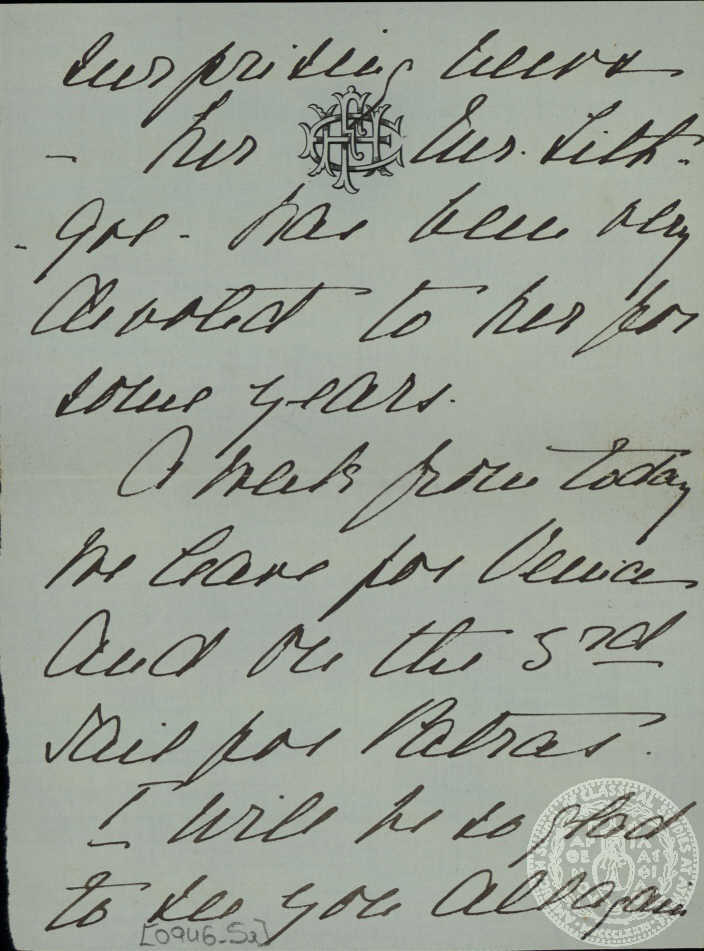 surprising news
- her Mr. Lith-
-goe- has been very
devoted to her for
some years.
A week from today
we leave for Venice
and on the 3rd
sail for Patras.
I will be so glad
to see you all again
[0946-5a]